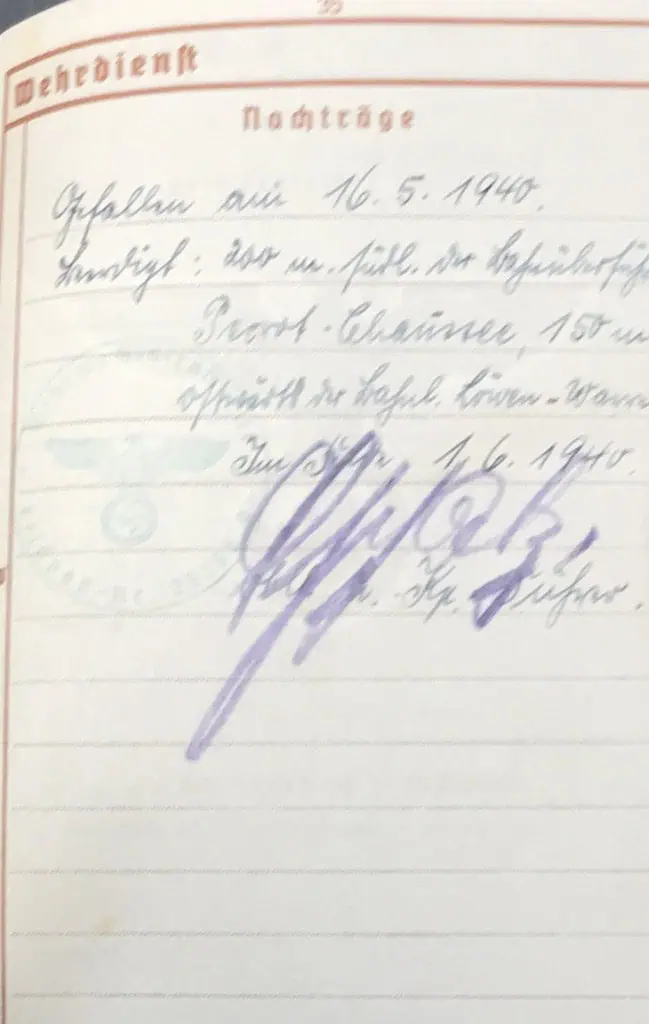 35
Wehrdienst
Nachträge
Gefallen am 16.5.1940.
Beerdigt: 200 m. südl. der Bahnüberführ
Perrot-Chaussee, 150 m
ostwärts der Bahnl. Löwen-Wavre
Im Felde, 1.6.1940.
u. Kp. Führer.